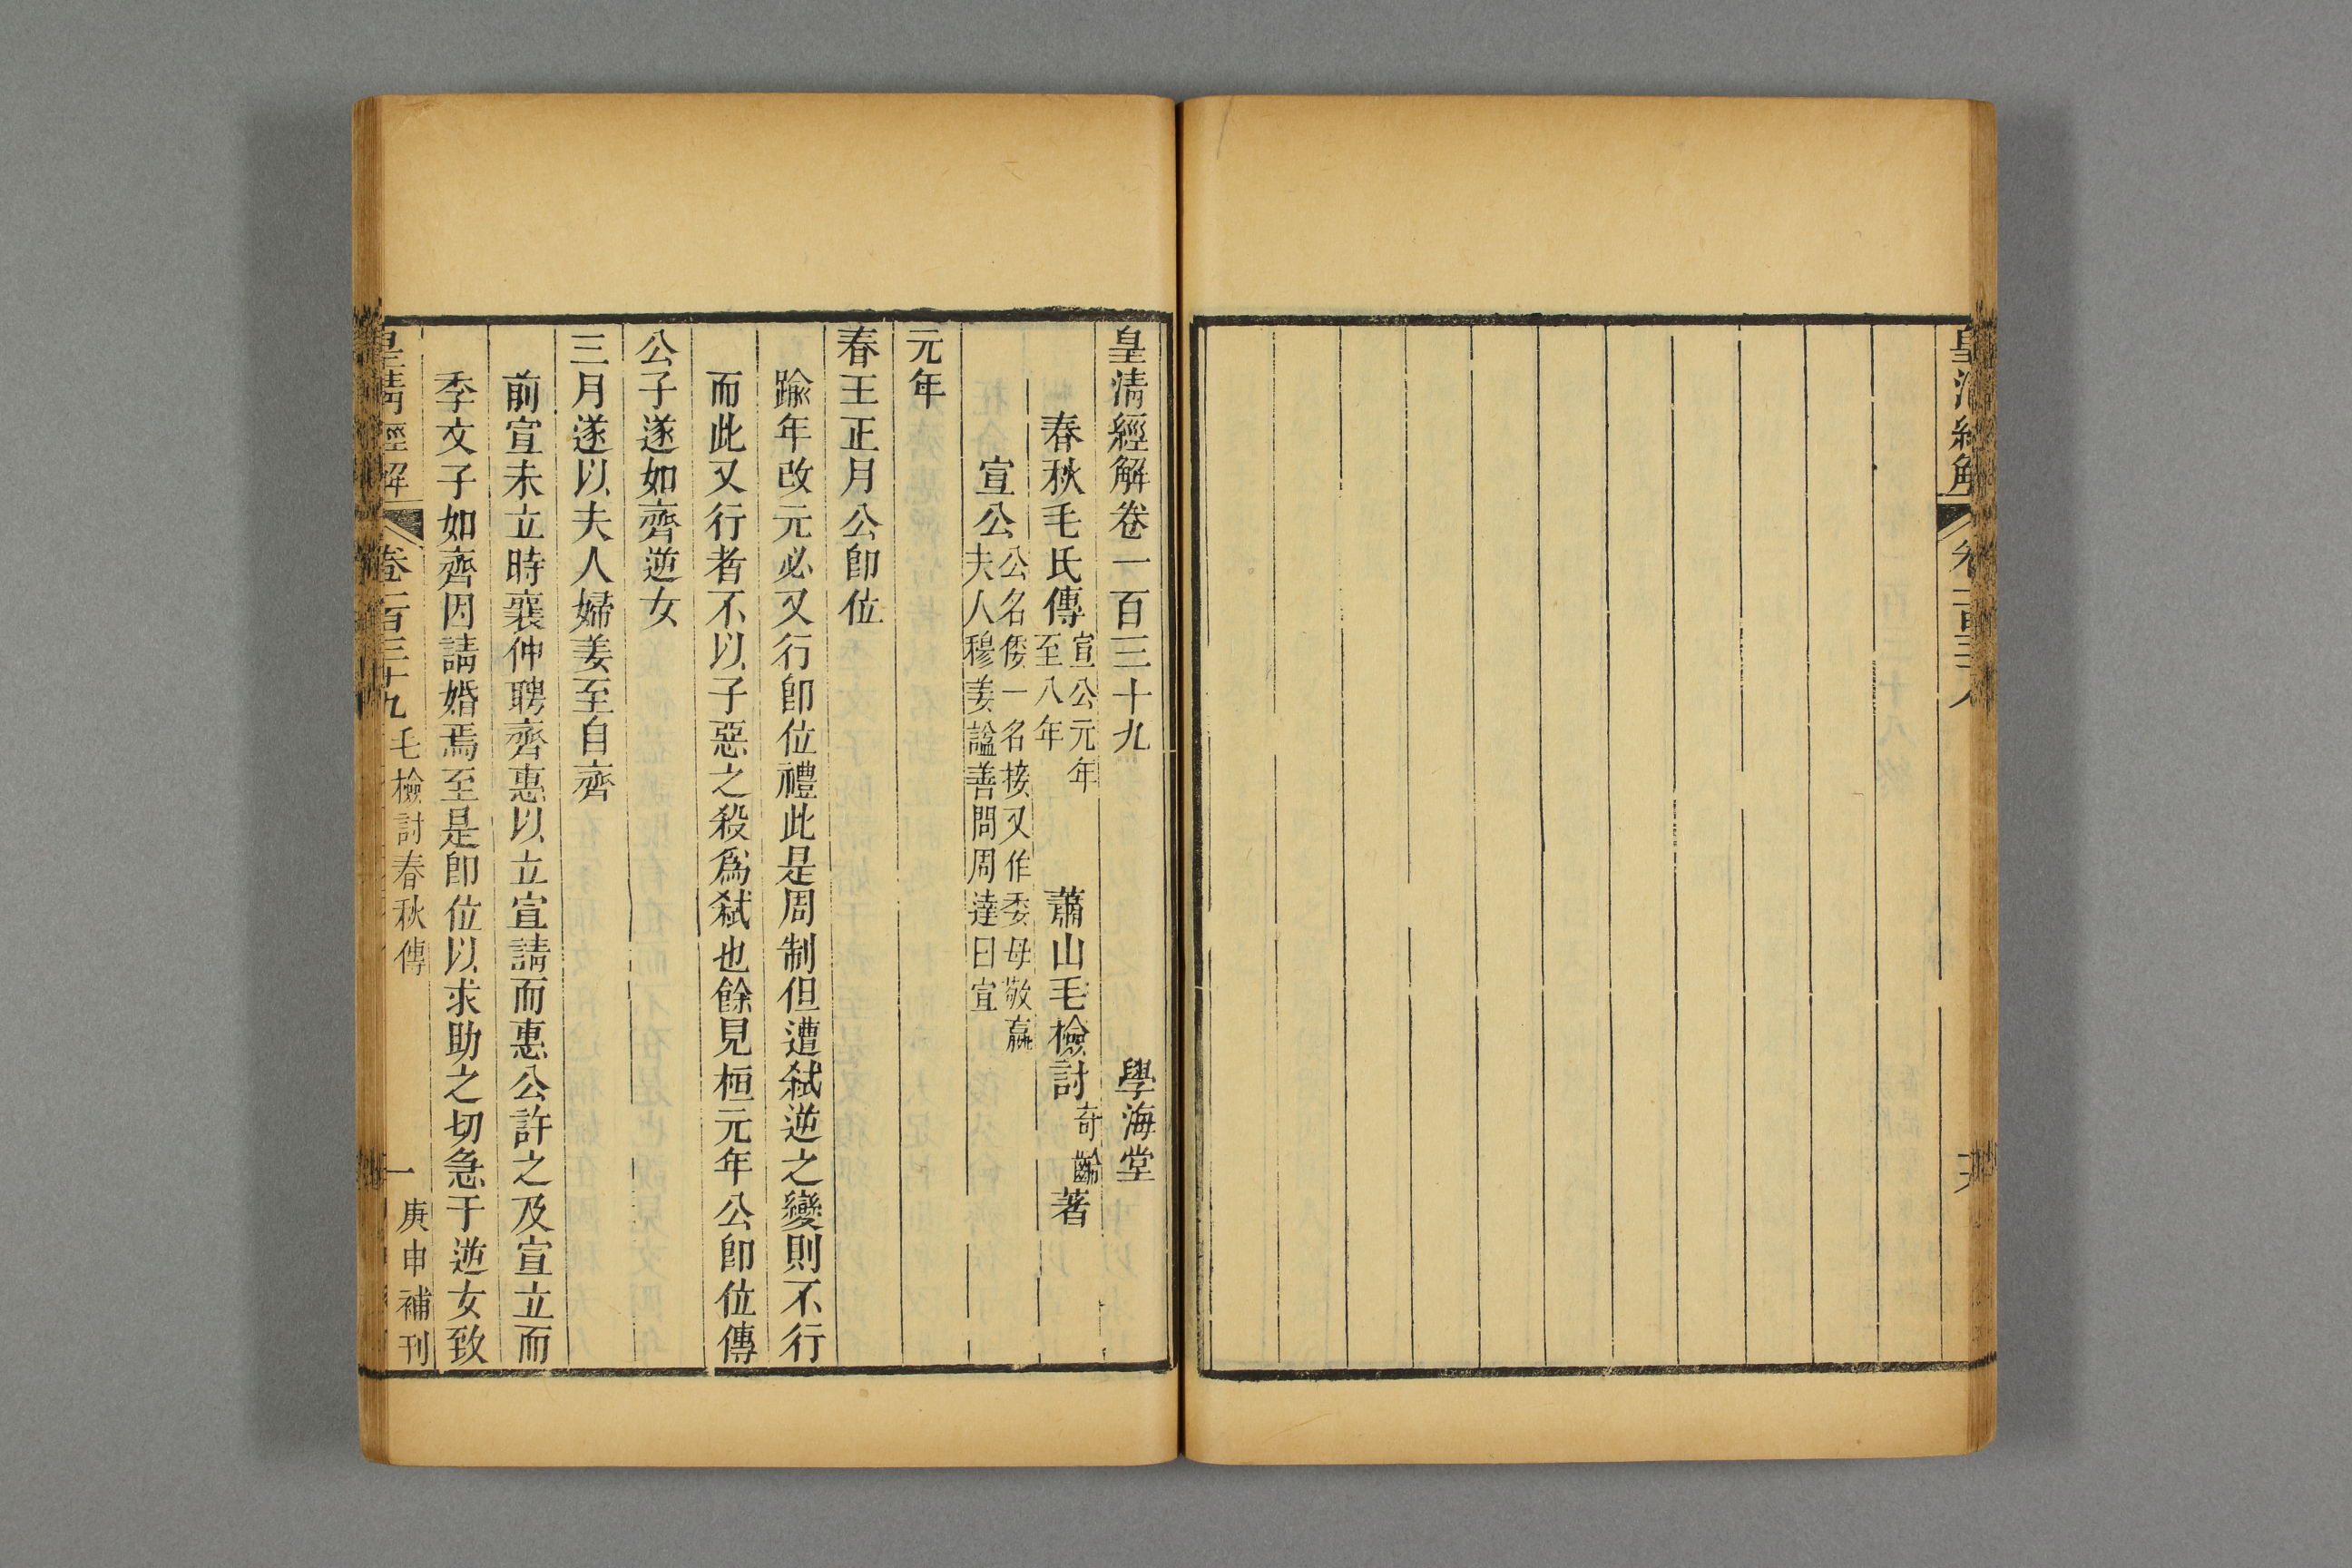 皇清經解
卷一百三十八
皇清經解卷一百三十九 學海堂
春秋毛氏傳 宣公元年至八年 蕭山毛檢討奇齡著
宣公 公名倭一名接又作委母敬嬴
夫人穆姜諡善問周達曰宣
元年
春王正月公卽位
踰年改元必又行卽位禮此是周制但遭弑逆之變則不行
而此又行者不以子惡之殺爲弑也餘見桓元年公卽位傳
公子遂如齊逆女
三月遂以夫人婦姜至自齊
前宣未立時襄仲聘齊惠以立宣請而惠公許之及宣立而
季文子如齊因請婚焉至是卽位以求助之切急于逆女致
皇清經解 卷一百三十九 毛檢討春秋傳 一 庚申補刊